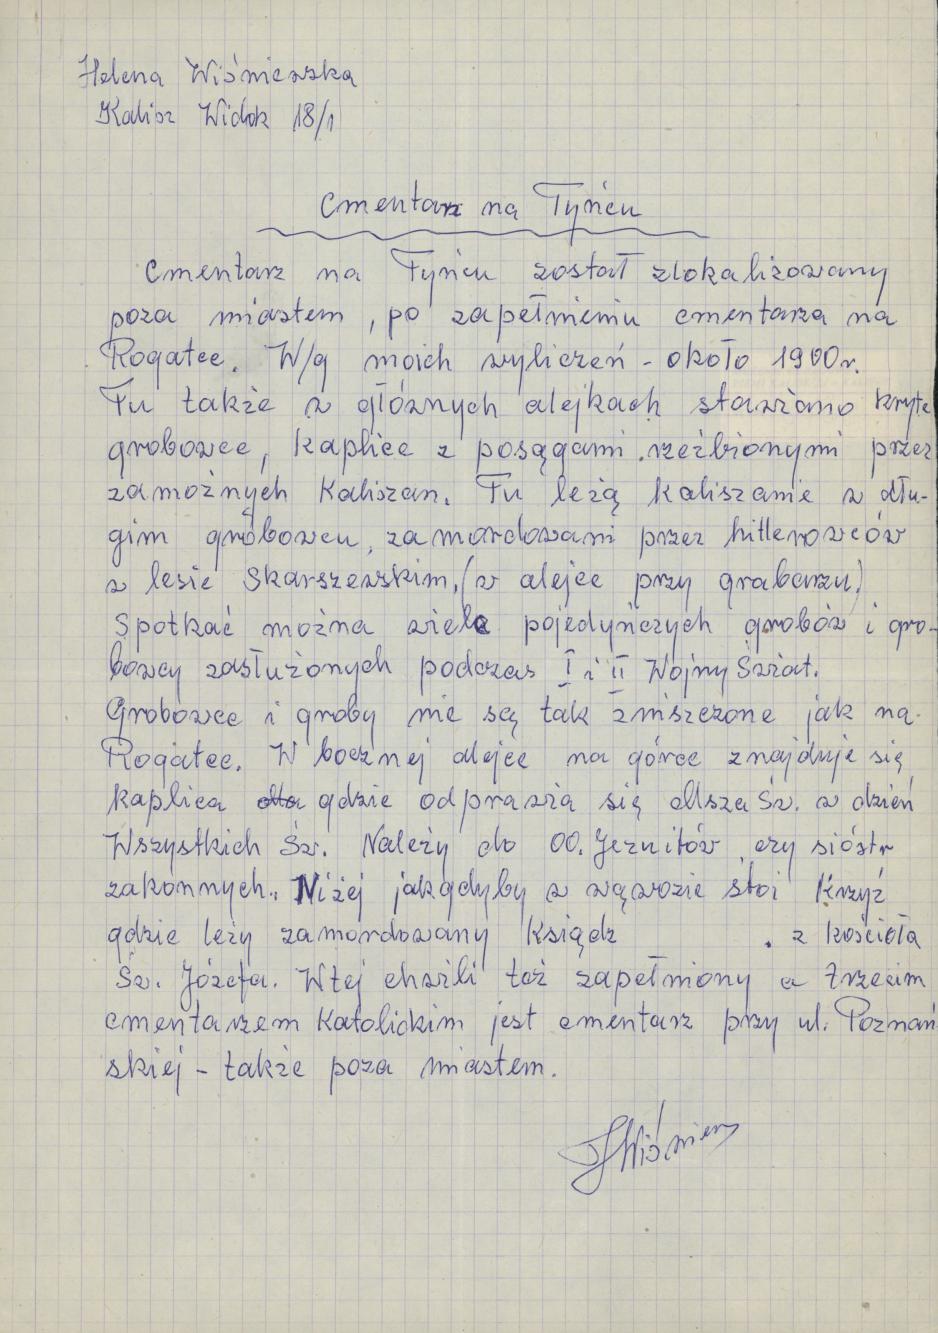 Helena Wiśniewska
Kalisz Widok 18/1
Cmentarz na Tyńcu
Cmentarz na Tyńcu został zlokalizowany
poza miastem, po zapełnieniu cmentarza na
Rogatce. W/g moich wyliczeń - około 1900r.
Tu także w głównych alejkach stawiano kryte
grobowce, kaplice z posągami rzeźbionymi przez
zamożnych Kaliszan. Tu leżą kaliszanie w dłu-
gim grobowcu, zamordowani przez hitlerowców
w lesie Skarszewskim, (w alejce przy grabarzu)
Spotkać można wiele pojedyńczych grobów i gro-
bowcy zasłużonych podczas I i II Wojny Świat.
Grobowce i groby nie są tak zniszczone jak na
Rogatce. W bocznej alejce na górce znajduje się
kaplica gdzie odprawia się Msza Św. w dzień
Wszystkich Św. Należy do OO. Jezuitów, czy sióstr
zakonnych. Niżej jakgdyby w wąwozie stoi Krzyż
gdzie leży zamordowany Ksiądz . z kościoła
Św. Józefa. Wtej chwili też zapełniony a trzecim
cmentarzem Katolickim jest cmentarz przy ul. Poznań
skiej - także poza miastem.
HWiśniew